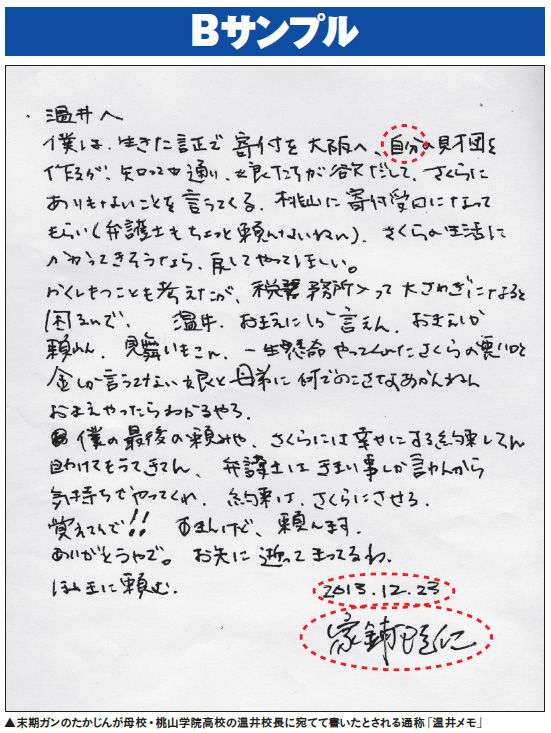 Bサンプル
温井へ
僕は、生きた証正で寄付を大阪へ、自分の財団を
作るが、知っての通り、娘たちが欲だして、さくらに
ありもないことを言うてくる。桃山に寄付受口になって
もらい(弁護士もちょっと頼んないねん)、さくらの生活に
かかってきそうなら、戻してやってほしい。
かくしもつことも考えたが、税務所入って大さわぎになると
困るんで、温井、おまえにしか言えん、おまえしか
頼れん、見舞いもこん、一生懸命やってくれたさくらの悪い口と
金しか言うてない娘と母弟に何でのこさなあかんねん
おまえやったらわかるやろ。
僕の最後の頼みや、さくらには幸せにする約束してん
助けてもうてきてん、弁護士はきまい事しか言わんから
気持ちでやってくれ、約束は、さくらにさせる。
覚えてんで!!すまんけど、頼んます。
ありがとうやで。お先に逝ってまってるわ。
ほんまに頼む。
2013.12.23
家鋪隆仁
▲末期ガンのたかじんが母校・桃山学院高校の温井校長に宛てて書いたとされる通称「温井メモ」